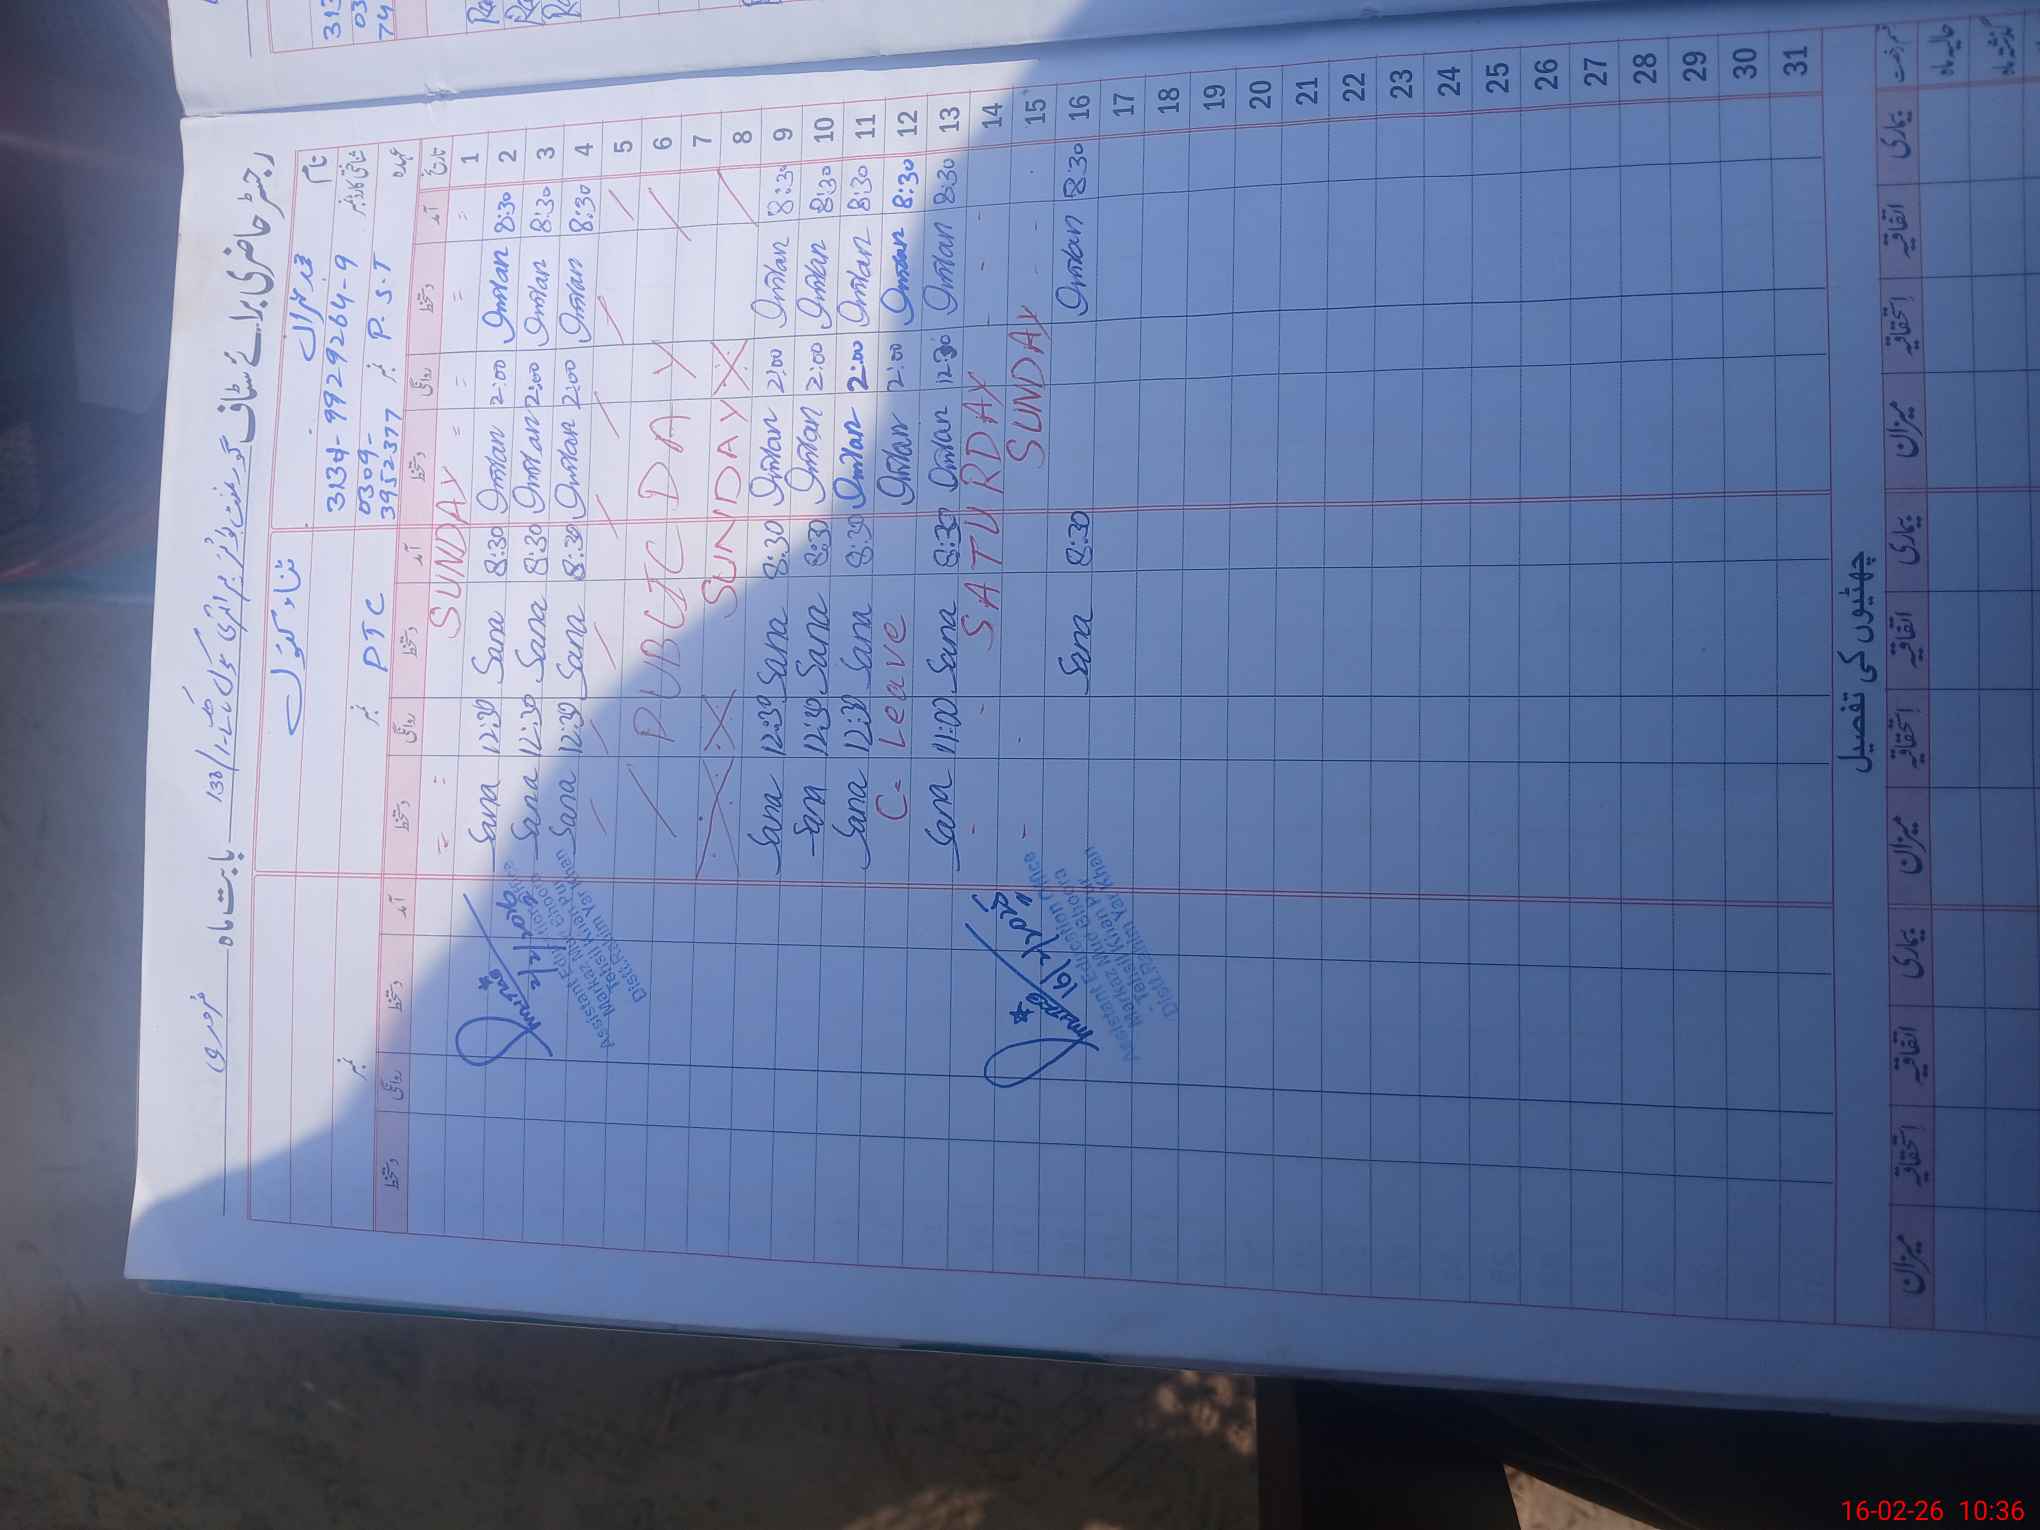 رجسٹر حاضری برائے سٹاف گورنمنٹ
بابت ماہ فروری
نام محمد عمران
ثناء کنول
شناختی کارڈ نمبر
3134-9929264-9
0309-
3952377
عہدہ P.S.T نمبر
PTC نمبر
نمبر
تاریخ آمد دستخط روانگی دستخط آمد دستخط روانگی دستخط آمد دستخط روانگی دستخط
1 = = = = SUNDAY = =
2 8:30 Imran 2:00 Imran 8:30 Sana 12:30 Sana
3 8:30 Imran 2:00 Imran 8:30 Sana 12:30 Sana
4 8:30 Imran 2:00 Imran 8:30 Sana 12:30 Sana
5
6 PUBLIC DAY
7
8 SUNDAY
9 8:30 Imran 2:00 Imran 8:30 Sana 12:30 Sana
10 8:30 Imran 2:00 Imran 8:30 Sana 12:30 Sana
11 8:30 Imran 2:00 Imran 8:30 Sana 12:30 Sana
12 8:30 Imran 2:00 Imran C- Leave
13 8:30 Imran 12:30 Imran 8:30 Sana 11:00 Sana
14 SATURDAY
15 SUNDAY
16 8:30 Imran 8:30 Sana
17
18
19
20
21
22
23
24
25
26
27
28
29
30
31
Assistant Education Officer
Markaz Mud Ghoora
Tehsil Khan Pur
Distt. Rahim Yar Khan
16/2/2026
Assistant Education Officer
Markaz Mud Ghoora
Tehsil Khan Pur
Distt. Rahim Yar Khan
چھٹیوں کی تفصیل
قسم رخصت بیماری اتفاقیہ استحقاقیہ میزان بیماری اتفاقیہ استحقاقیہ میزان بیماری اتفاقیہ استحقاقیہ میزان
حالیہ ماہ
گذشتہ ماہ
16-02-26 10:36